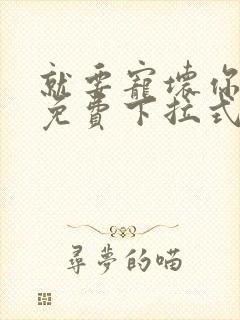 就要寵壞你
免費下拉式
尋夢的喵